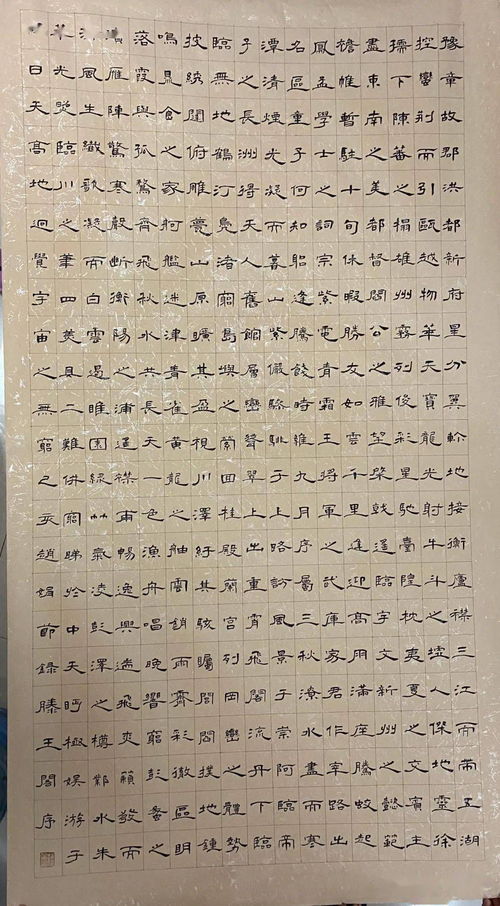 豫章故郡洪都新府星分翼軫地接衡廬襟三江而帶五湖
控蠻荊而引甌越物華天寶龍光射牛斗之墟人傑地靈徐
孺下陳蕃之榻雄州霧列俊彩星馳臺隍枕夷夏之交賓主
盡東南之美都督閻公之雅望棨戟遙臨宇文新州之懿範
襜帷暫駐十旬休暇勝友如雲千里逢迎高朋滿座騰蛟起
鳳孟學士之詞宗紫電青霜王將軍之武庫家君作宰路出
名區童子何知躬逢勝餞時維九月序屬三秋潦水盡而寒
潭清煙光凝而暮山紫儼驂騑于上路訪風景于崇阿臨帝
子之長洲得天人舊館層巒聳翠上出重霄飛閣流丹下臨
臨無地鶴汀鳧渚窮島嶼之縈回桂殿蘭宮列岡巒之體勢
披繡闥俯雕甍山原曠其盈視川澤紆其駭矚閭閻撲地鍾
鳴鼎食之家舸艦迷津青雀黃龍之舳雲銷雨霽彩徹區明
落霞與孤鶩齊飛秋水共長天一色漁舟唱晚響窮彭蠡之
雁陣驚寒聲斷衡陽之浦遙襟甫暢逸興遄飛爽籟發而
風生纖歌凝而白雲遏睢園綠竹氣凌彭澤之樽鄴水朱
華光照臨川之筆四美具二難併窮睇於中天眄極娛游于
日天高地迥覺宇宙之無窮己亥趙娟節錄滕王閣序